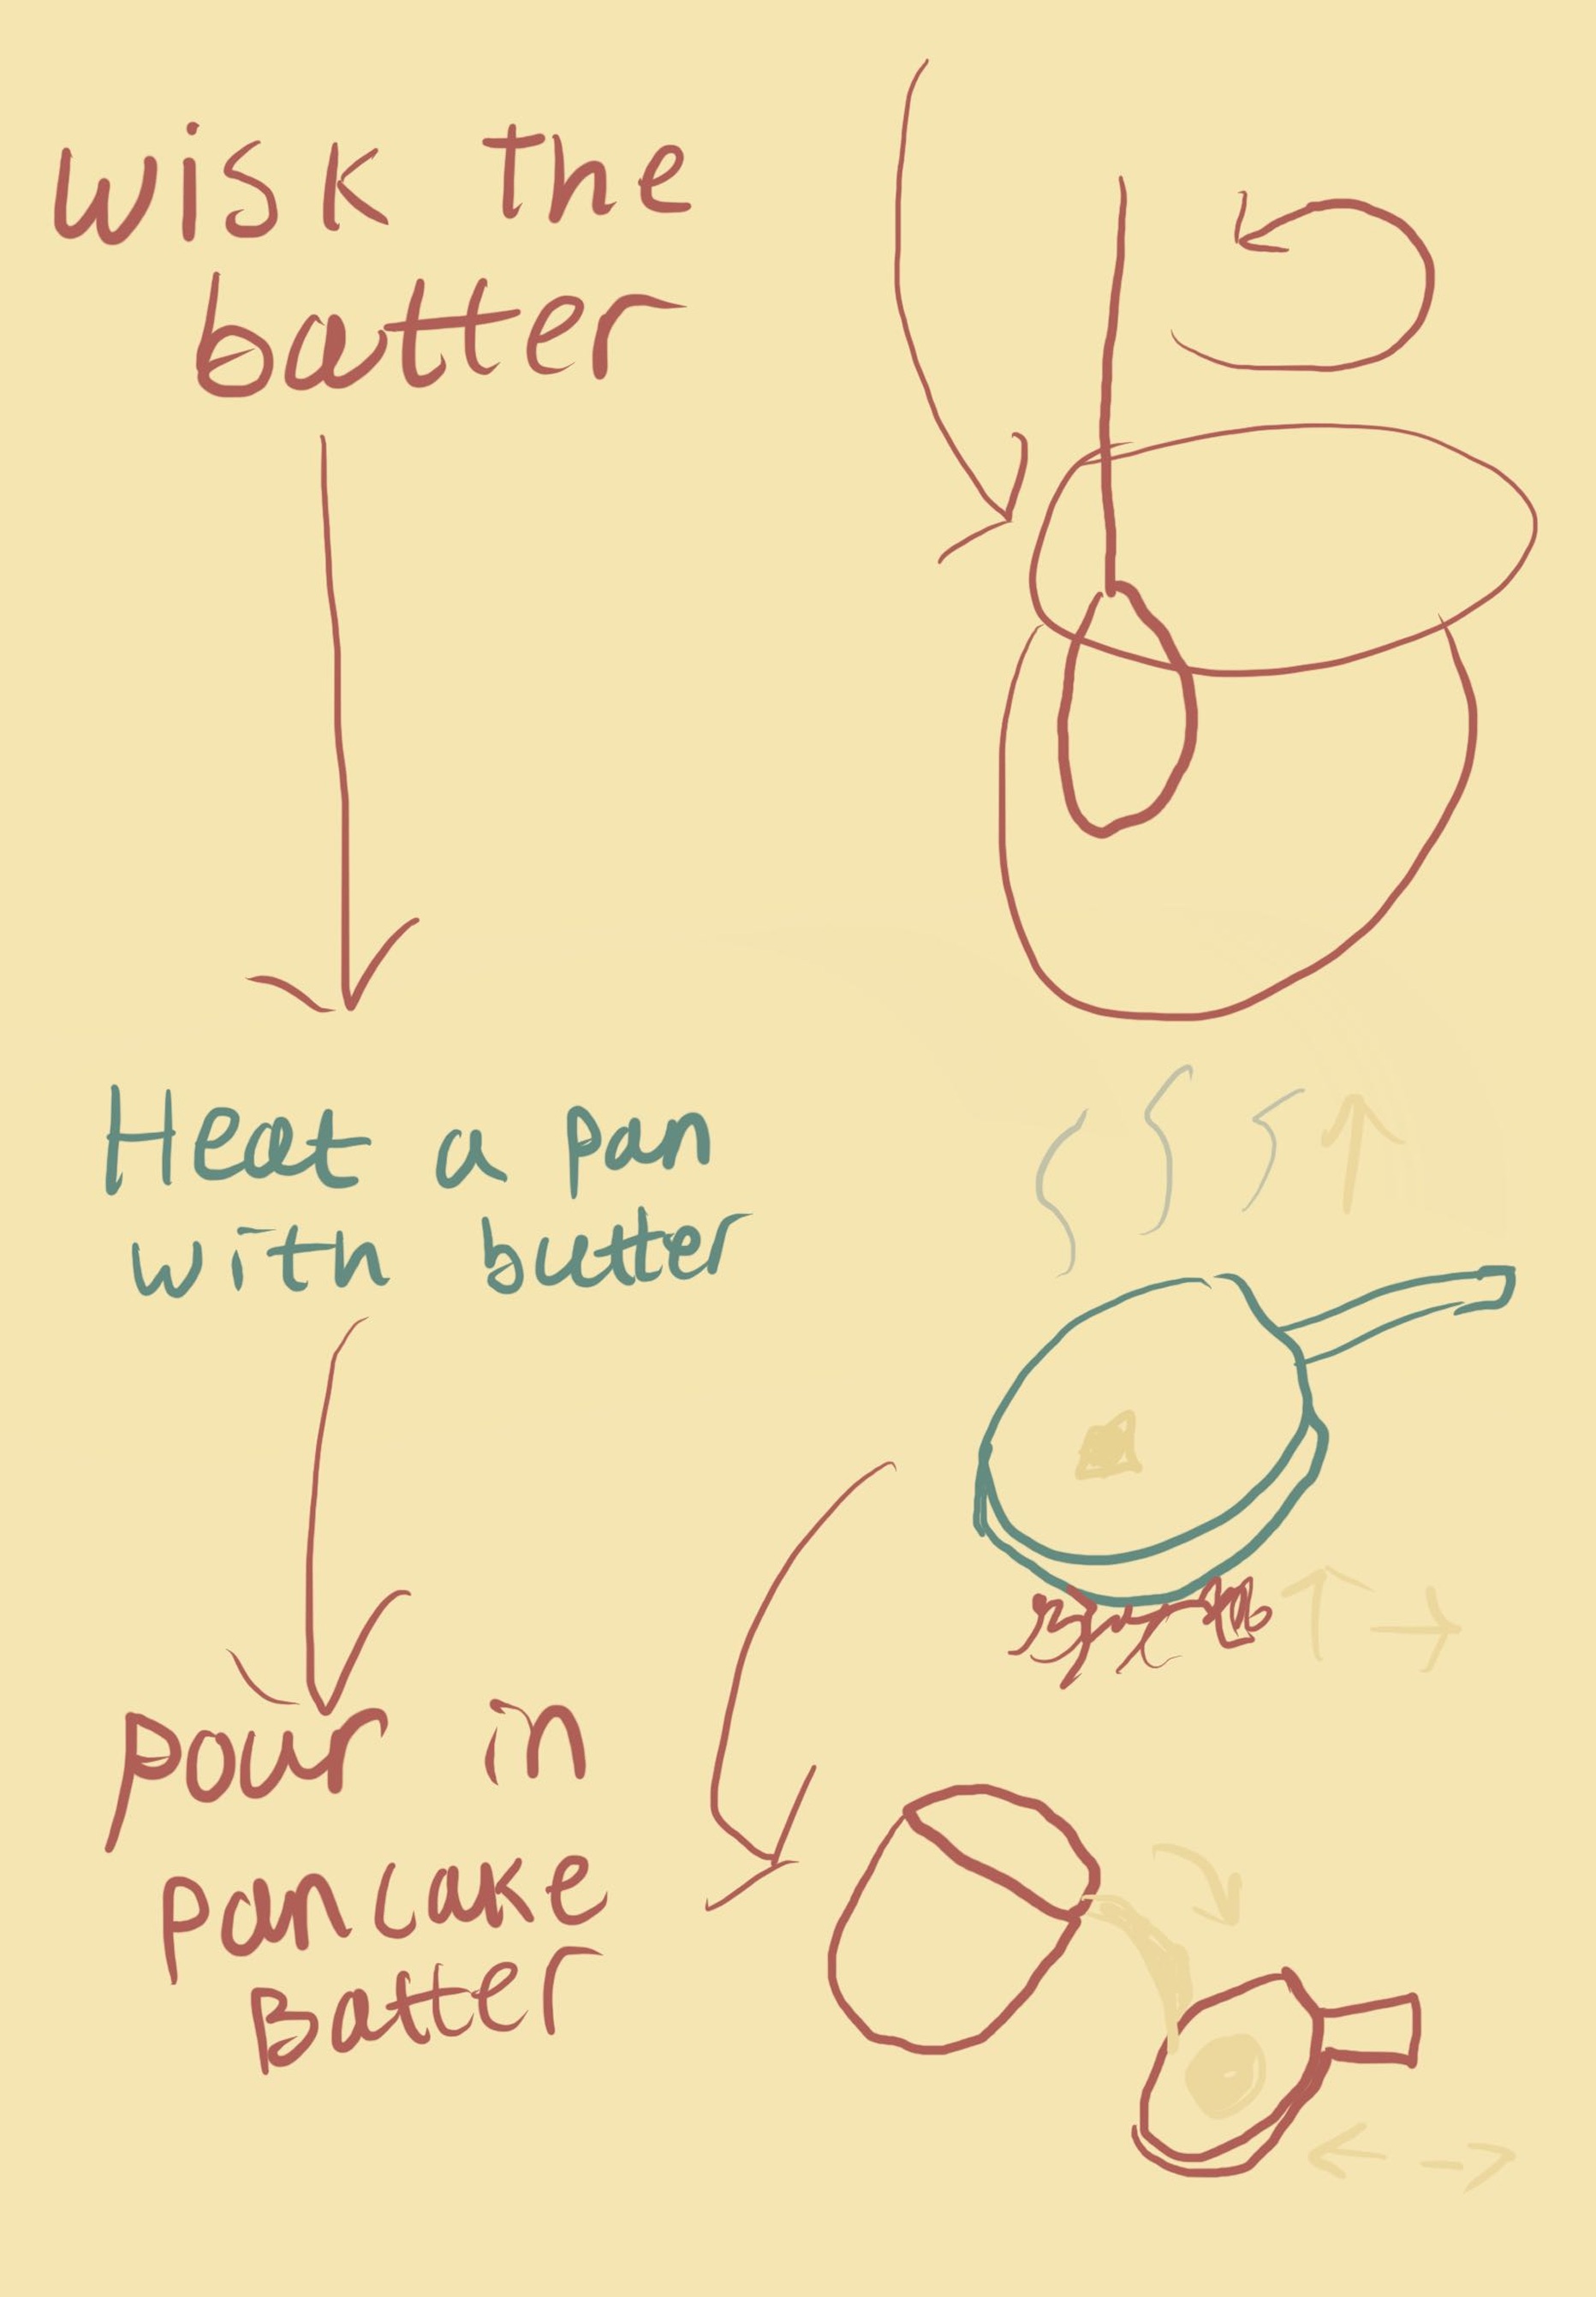 wisk the
batter
Heat a pan
with butter
pour in
pancake
Batter